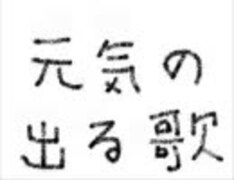 元気の
出る歌